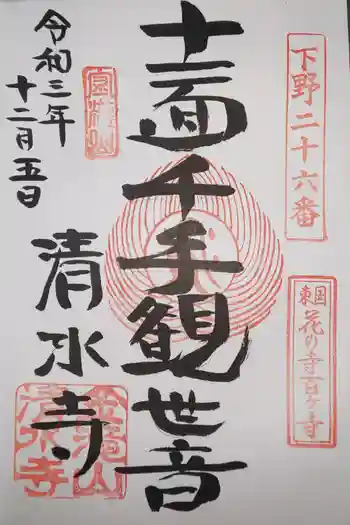 下野二十六番
東国花の寺百ヶ寺
十一面千手観世音
清水寺
令和三年
十二月五日
清水寺